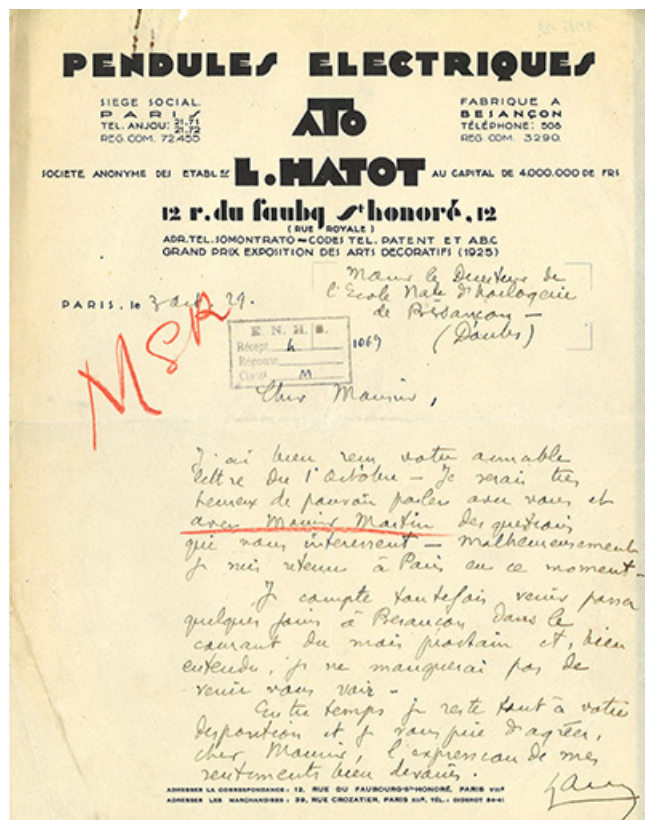 PENDULES ELECTRIQUES
SIEGE SOCIAL.
PARIS
TEL. ANJOU: 21-71
21-72
REG. COM. 72.455
ATO
FABRIQUE A
BESANÇON
TÉLÉPHONE: 506
REG. COM. 3290.
SOCIETE ANONYME DES ETABL.ts L. HATOT AU CAPITAL DE 4.000.000 DE FRS
12 r. du faubg St honoré, 12
(RUE ROYALE)
ADR. TEL. JOMONTRATO - CODES TEL. PATENT ET ABC
GRAND PRIX EXPOSITION DES ARTS DECORATIFS (1925)
le Directeur de
l'Ecole Nale d'horlogerie
de Besançon -
(Doubs)
PARIS, le 3 oct. 29.
MSR
E. N. H. B.
Récept. 4
Réponse
Class M
1069
Cher Monsieur,
J'ai bien reçu votre aimable
lettre du 1er Octobre - Je serais très
heureux de pouvoir parler avec vous et
avec Monsieur Martin des questions
qui vous intéressent - malheureusement
je suis retenu à Paris en ce moment -
Je compte toutefois venir passer
quelques jours à Besançon dans le
courant du mois prochain et, bien
entendu, je ne manquerai pas de
venir vous voir -
Entre temps je reste tout à votre
disposition et je vous prie d'agréer,
cher Monsieur, l'expression de mes
sentiments bien dévoués.
ADRESSER LA CORRESPONDANCE : 12, RUE DU FAUBOURG-St-HONORÉ, PARIS VIIIe
ADRESSER LES MARCHANDISES : 39, RUE CROZATIER, PARIS XIIe, TÉL. : DIDEROT